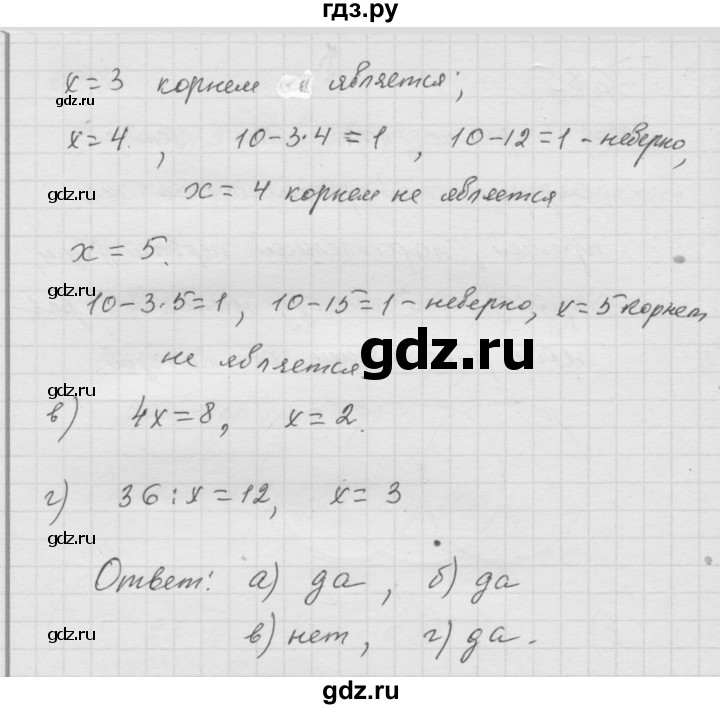 гдз.ру
x = 3 корнем является;
gdz.ru
x = 4, 10 - 3·4 = 1, 10 - 12 = 1 - неверно,
gdz.ru
x = 4 корнем не является
x = 5.
gdz.ru
10 - 3·5 = 1, 10 - 15 = 1 - неверно, x = 5 корнем
gdz.ru
не является.
gdz.ru
в) 4x = 8, x = 2.
г) 36 : x = 12, x = 3
gdz.ru
Ответ: а) да, б) да
gdz.ru
в) нет, г) да.
gdz.ru